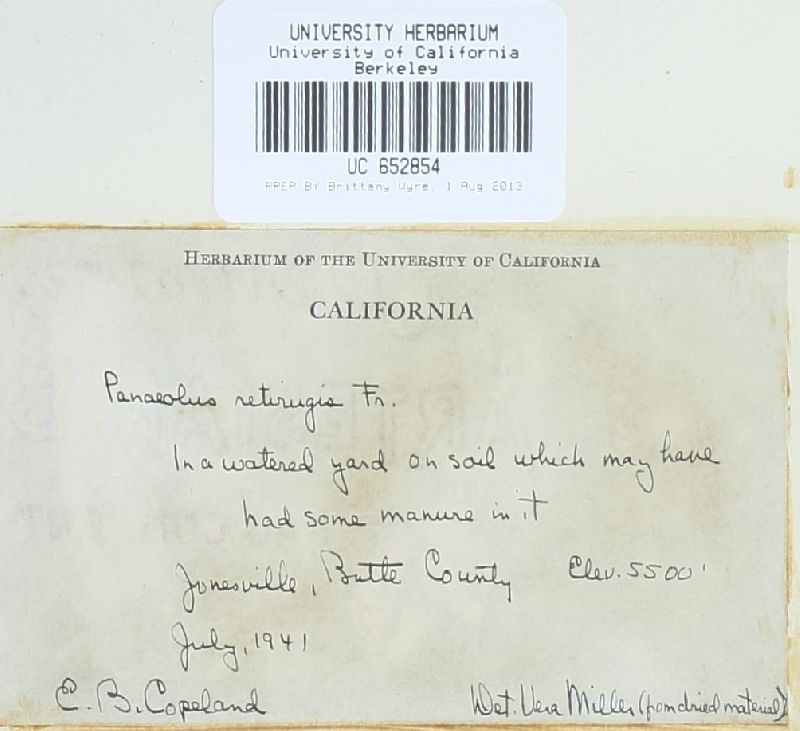 UNIVERSITY HERBARIUM
University of California
Berkeley
UC 652854
PREP BY Brittany Wyre, 1 Aug 2013
HERBARIUM OF THE UNIVERSITY OF CALIFORNIA
CALIFORNIA
Panaeolus retirugis Fr.
In a watered yard on soil which may have
had some manure in it
Jonesville, Butte County Elev. 5500'
July, 1941
E. B. Copeland Det. Vera Miller (from dried material)